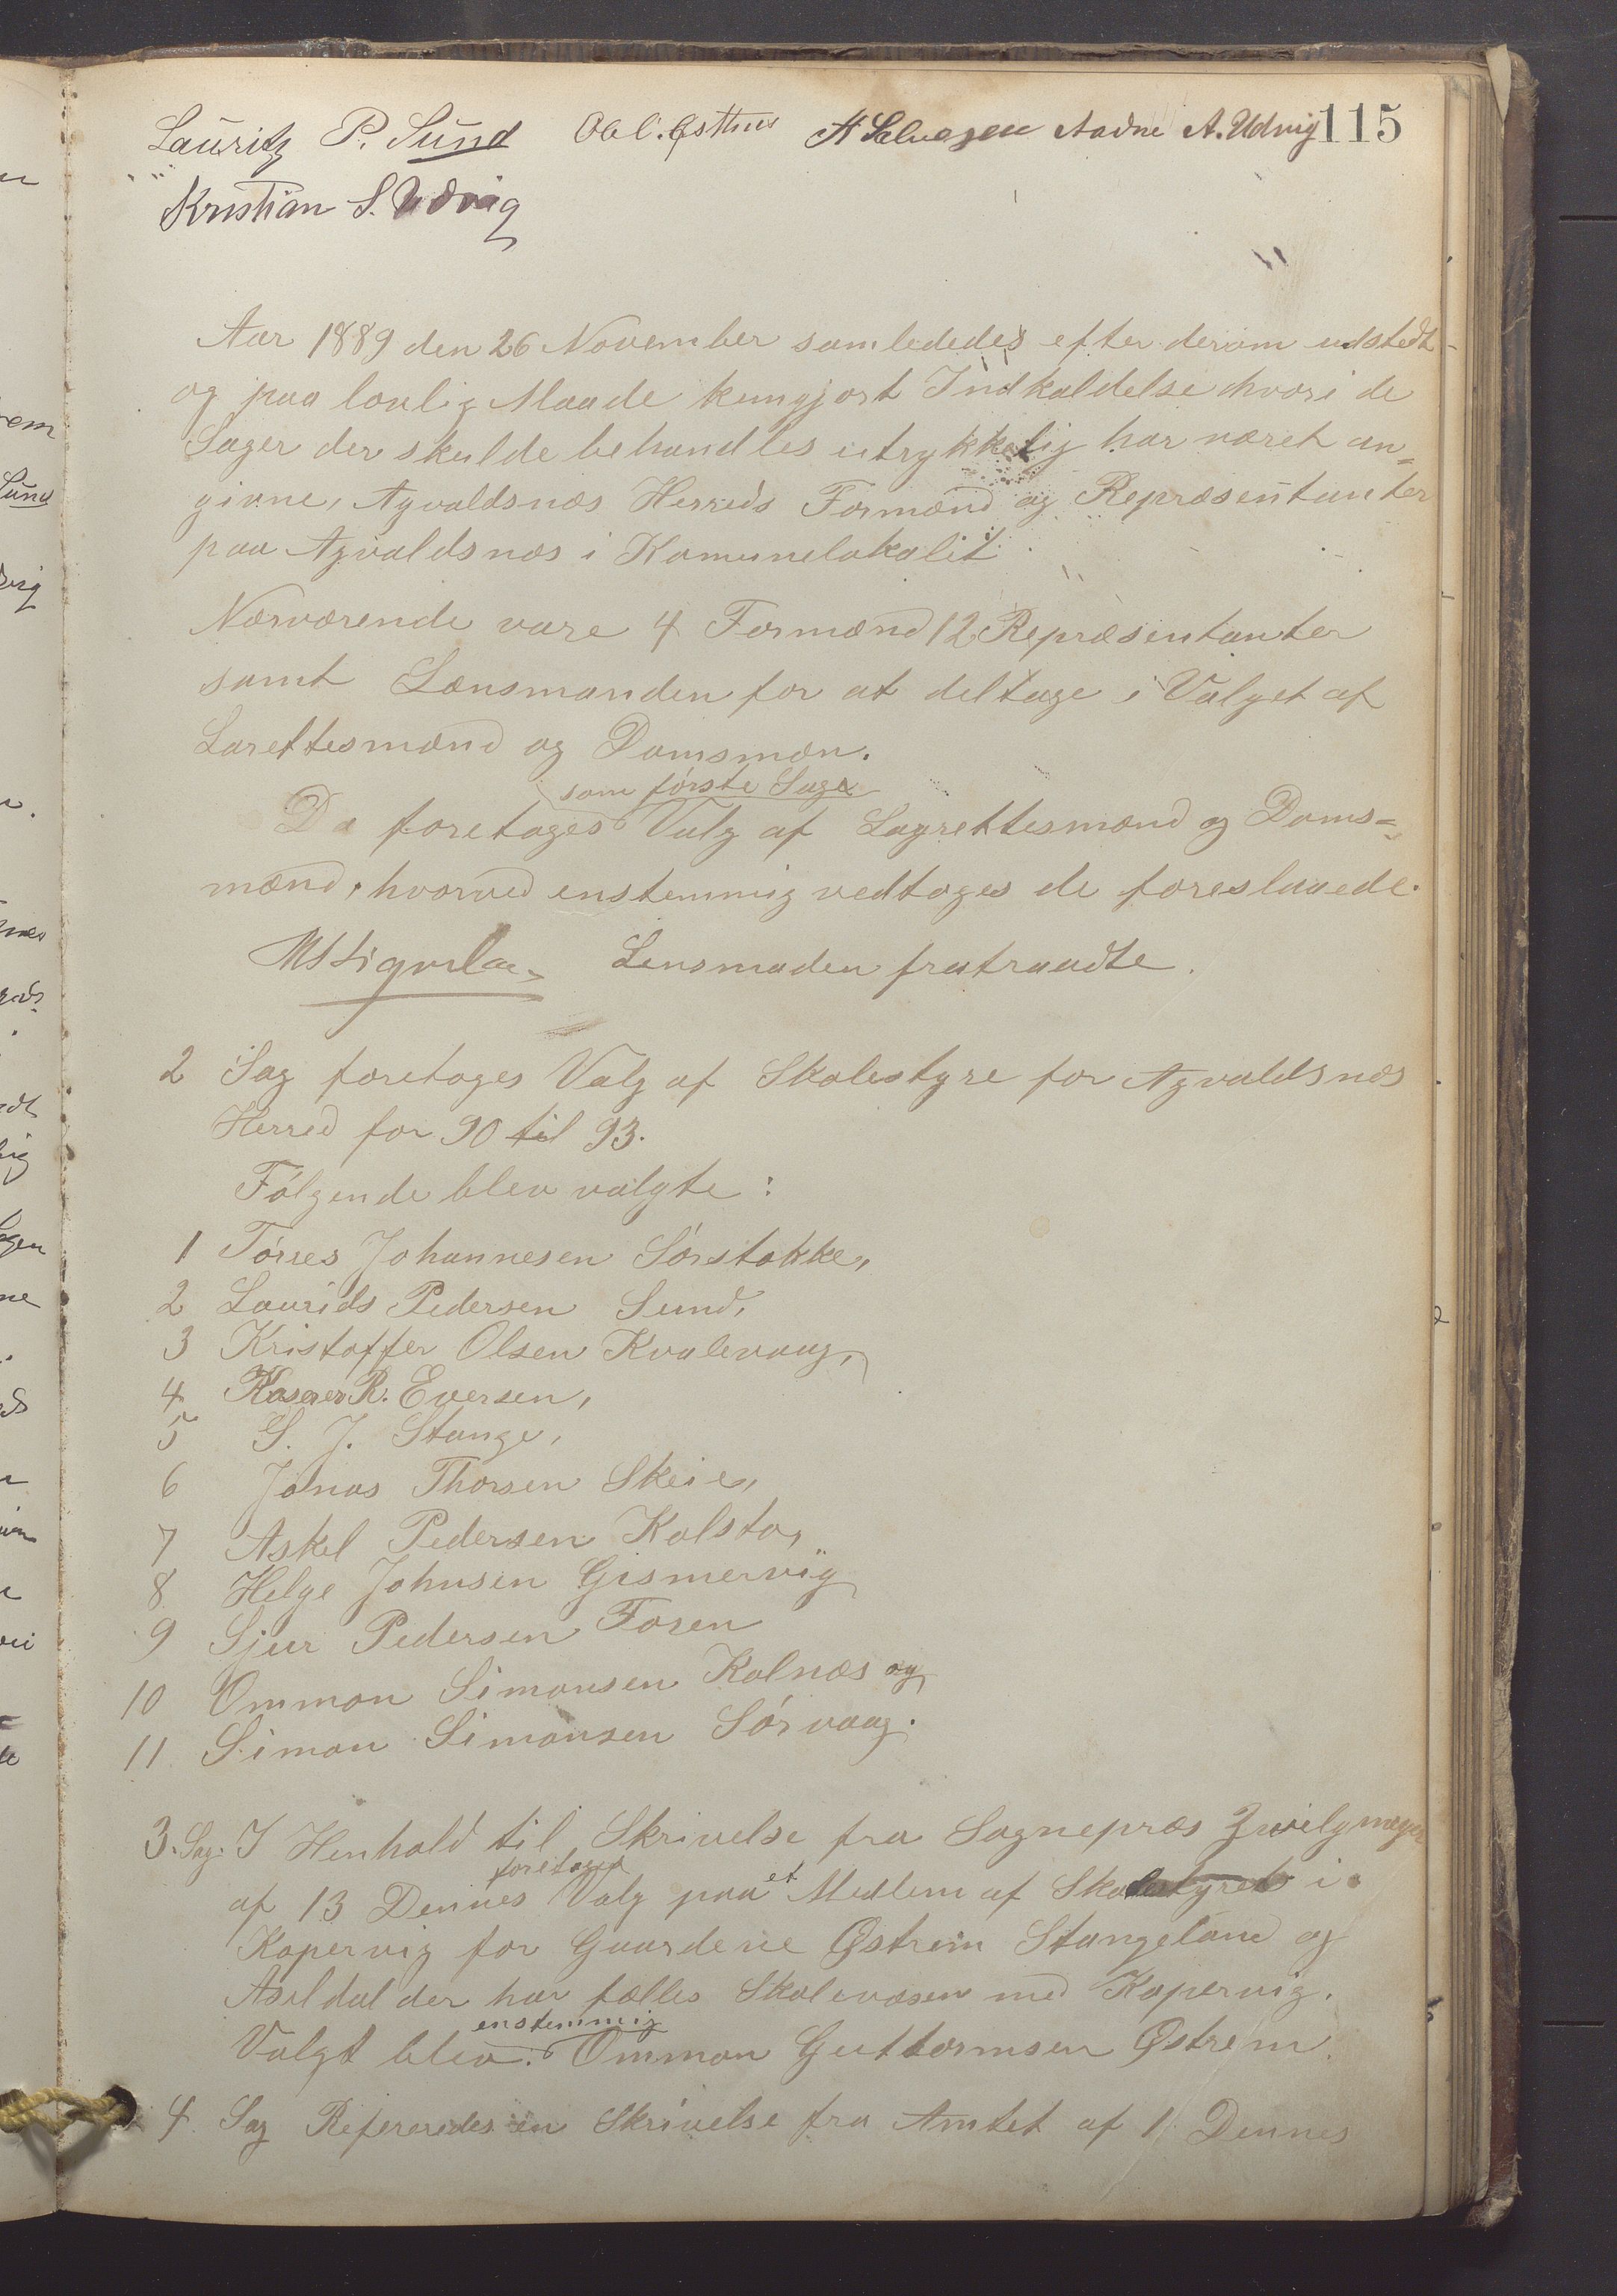 Lauritz P. Sund A Salvesen Aadne A. Udvig 115
Kristian S. Udvig
Aar 1889 den 26 November samlededes efter derom udstedt
og paa lovlig Maade kungjort Indkaldelse hvori de
Sager der skulde behandles utrykkelig har været an=
givne, Agvaldsnæs Herreds Formænd og Repræsentanter
paa Agvaldsnæs i Komunelokalit.
Nærværende vare 4 Formænd 12 Repræsentanter
samt Lensmanden for at deltage i Valget af
Larettesmænd og Domsmæn.
som første Sag
De foretoges Valg af Lagrettesmænd og Doms=
mænd, hvorved enstemmig vedtoges de foreslaaede.
Lensmaden fratraadte.
2 Sag foretoges Valg af Skolestyre for Agvaldsnæs
Herred for 90 til 93.
Følgende blev valgte:
1 Tørres Johannesen Sørstokke,
2 Laurids Pedersen Sund,
3 Kristoffer Olsen Kvalevaag,
4 Kasper R. Eversen,
5 G. J. Stange,
6 Jonas Thorsen Skeie,
7 Askel Pedersen Kolstø,
8 Helge Johnsen Gismervig
9 Sjur Pedersen Fosen
10 Ommon Simonsen Kolnæs og
11 Simon Simonsen Sørvaag.
3. Sag. I Henhold til Skrivelse fra Sognepræs Zwilgmeyer
foretoges et
af 13 Dennes Valg paa Medlem af Skolestyret i
Kopervig for Gaardene Østrem Stangeland og
Aseldal der har fælles Skolevæsen med Kopervig.
enstemmig
Valgt blev. Ommon Guttormsen Østrem.
4 Sag Refereredes en Skrivelse fra Amtet af 1 Dennes